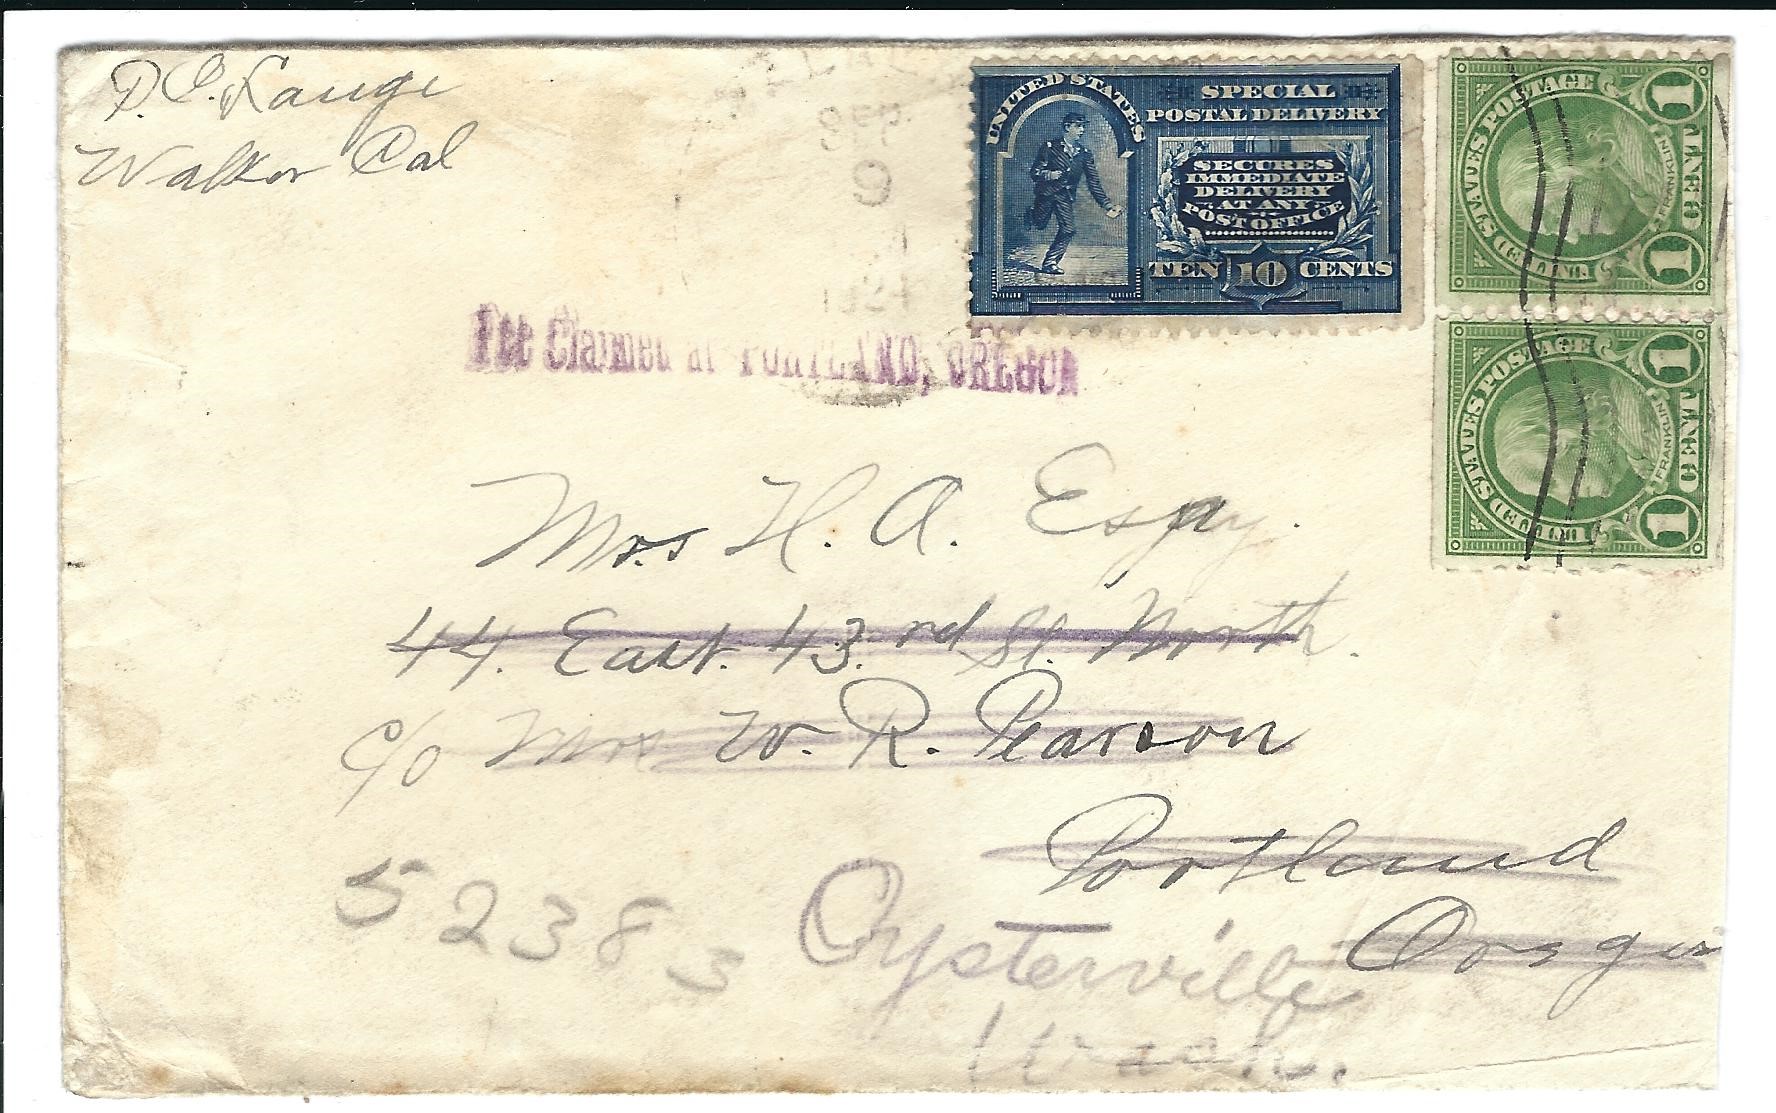 P. E. Lange
Walker Cal
UNITED STATES
SPECIAL
POSTAL DELIVERY
SECURES
IMMEDIATE
DELIVERY
AT ANY
POST OFFICE
TEN 10 CENTS
UNITED STATES POSTAGE
1 CENT 1
FRANKLIN
UNITED STATES POSTAGE
1 CENT 1
FRANKLIN
SEP
9
Fee Claimed at PORTLAND, OREGON
Mrs H. A. Espy.
44. East. 43.rd St. North.
c/o Mrs W. R. Pearson
Portland
Oregon
52383
Oysterville
Wash.